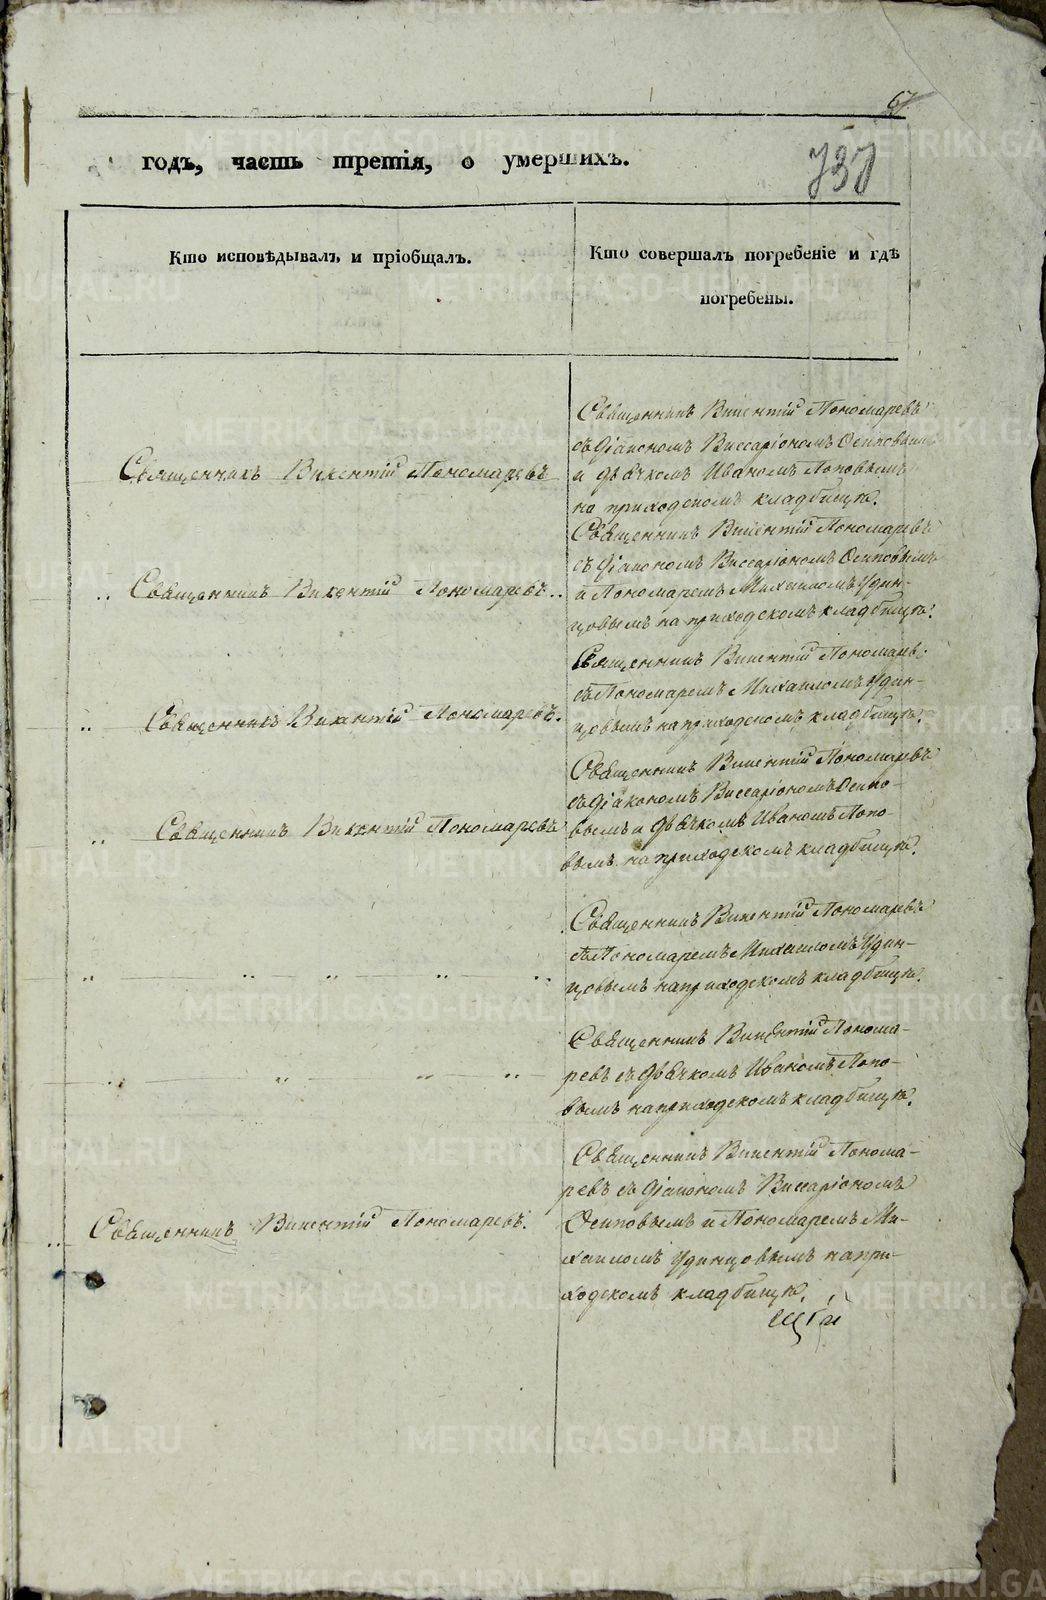 67.
годъ, часть третія, о умершихъ.
737
Кто исповѣдывалъ и пріобщалъ.
Кто совершалъ погребеніе и гдѣ
погребены.
Священникъ Викентій Пономаревъ
Священникъ Викентій Пономаревъ
съ Діакономъ Виссаріономъ Осиповымъ
и дьячкомъ Иваномъ Поповымъ
на приходскомъ кладбищѣ.
Священникъ Викентій Пономаревъ
Священникъ Викентій Пономаревъ
съ Діакономъ Виссаріономъ Осиповымъ
и Пономаремъ Михаиломъ Удин-
цовымъ на приходскомъ кладбищѣ.
Священникъ Викентій Пономаревъ.
Священникъ Викентій Пономаревъ
съ Пономаремъ Михаиломъ Удин-
цовымъ на приходскомъ кладбищѣ.
Священникъ Викентій Пономаревъ
Священникъ Викентій Пономаревъ
съ Діакономъ Виссаріономъ Осипо-
вымъ и дьячкомъ Иваномъ Попо-
вымъ на приходскомъ кладбищѣ.
Священникъ Викентій Пономаревъ
съ Пономаремъ Михаиломъ Удин-
цовымъ на приходскомъ кладбищѣ.
Священникъ Викентій Понома-
ревъ съ дьячкомъ Иваномъ Попо-
вымъ на приходскомъ кладбищѣ.
Священникъ Викентій Пономаревъ.
Священникъ Викентій Понома-
ревъ съ Діакономъ Виссаріономъ
Осиповымъ и Пономаремъ Ми-
хаиломъ Удинцовымъ на при-
ходскомъ кладбищѣ.
METRIKI.GASO-URAL.RU